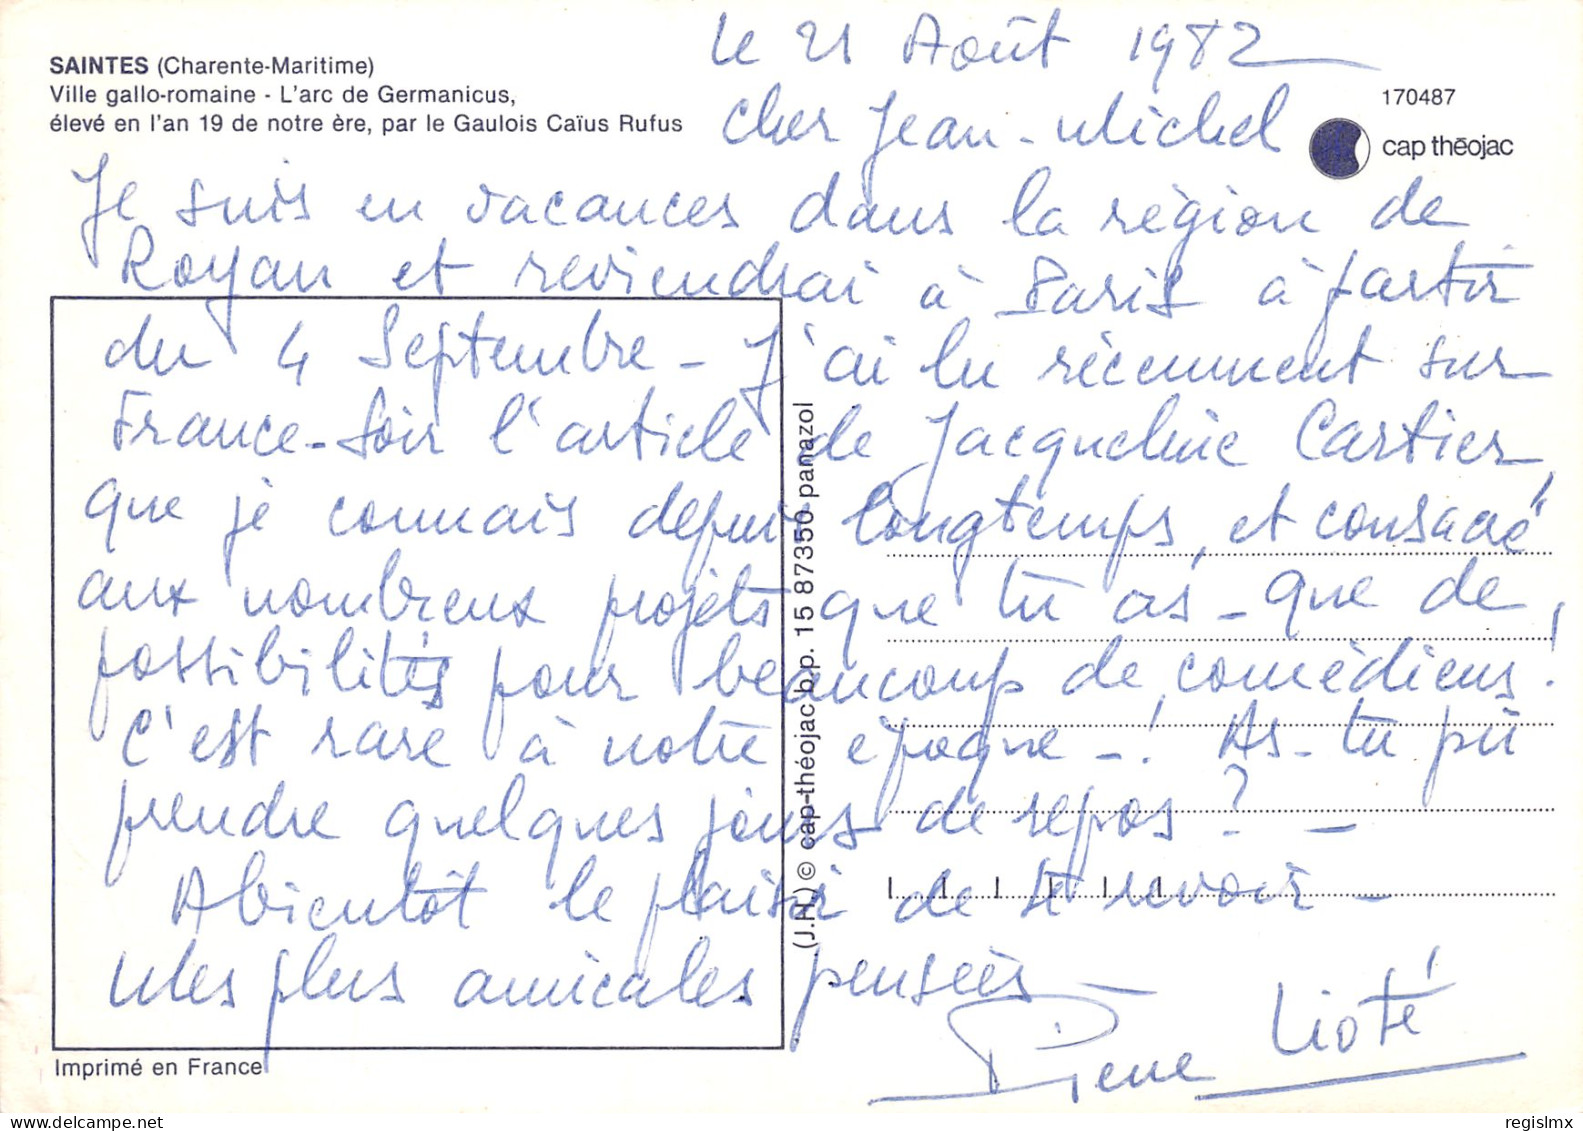 SAINTES (Charente-Maritime)
Ville gallo-romaine - L'arc de Germanicus,
élevé en l'an 19 de notre ère, par le Gaulois Caïus Rufus
170487
cap théojac
le 21 Août 1982
Cher Jean-Michel
Je suis en vacances dans la région de
Royan et reviendrai à Paris à partir
du 4 Septembre - J'ai lu récemment sur
France-Soir l'article de Jacqueline Cartier,
que je connais depuis longtemps, et consacré
aux nombreux projets que tu as - que de
possibilités pour beaucoup de comédiens!
C'est rare à notre époque -! As-tu pû
prendre quelques jours de repos? -
A bientôt le plaisir de te revoir -
Mes plus amicales pensées -
Pierre Lioté
(J.H.) © cap-théojac b.p. 15 87350 panazol
Imprimé en France
regislmx